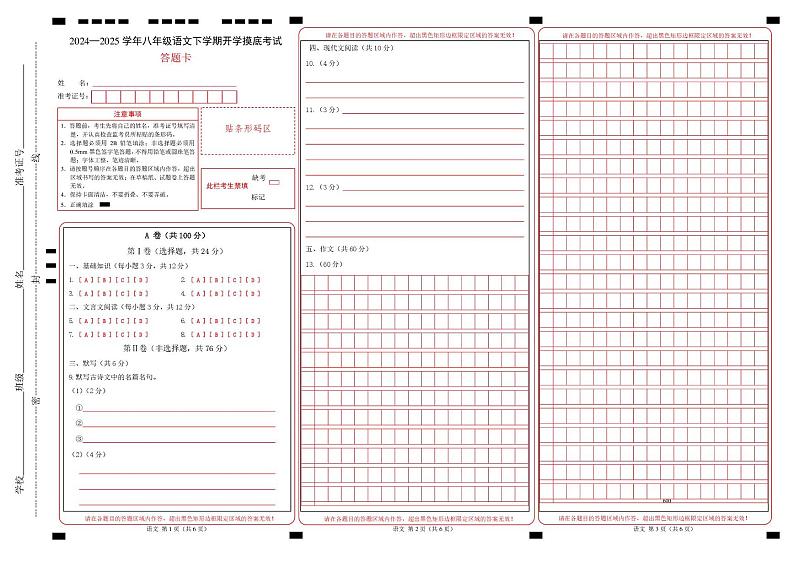 学校
班级
姓名
准考证号
密
封
线
2024—2025 学年八年级语文下学期开学摸底考试
答题卡
姓 名：
准考证号：
注意事项
1．答题前，考生先将自己的姓名，准考证号填写清
楚，并认真检查监考员所粘贴的条形码。
2．选择题必须用 2B 铅笔填涂；非选择题必须用
0.5mm 黑色签字笔答题，不得用铅笔或圆珠笔答
题；字体工整、笔迹清晰。
3．请按题号顺序在各题目的答题区域内作答，超出
区域书写的答案无效；在草稿纸、试题卷上答题
无效。
4．保持卡面清洁，不要折叠、不要弄破。
5．正确填涂
贴条形码区
此栏考生禁填
缺考
标记
A 卷（共 100 分）
第Ⅰ卷（选择题，共 24 分）
一、基础知识（每小题 3 分，共 12 分）
1.［A］［B］［C］［D］ 2.［A］［B］［C］［D］
3.［A］［B］［C］［D］ 4.［A］［B］［C］［D］
二、文言文阅读（每小题 3 分，共 12 分）
5.［A］［B］［C］［D］ 6.［A］［B］［C］［D］
7.［A］［B］［C］［D］ 8.［A］［B］［C］［D］
第Ⅱ卷（非选择题，共 76 分）
三、默写（共 6 分）
9.默写古诗文中的名篇名句。
（1）（2 分）
①
②
③
（2）（4 分）
请在各题目的答题区域内作答，超出黑色矩形边框限定区域的答案无效！
语文 第 1 页（共 6 页）
请在各题目的答题区域内作答，超出黑色矩形边框限定区域的答案无效！
四、现代文阅读（共 10 分）
10.（4 分）
11.（3 分）
12.（3 分）
五、作文（共 60 分）
13.（60 分）
请在各题目的答题区域内作答，超出黑色矩形边框限定区域的答案无效！
语文 第 2 页（共 6 页）
请在各题目的答题区域内作答，超出黑色矩形边框限定区域的答案无效！
600
请在各题目的答题区域内作答，超出黑色矩形边框限定区域的答案无效！
语文 第 3 页（共 6 页）